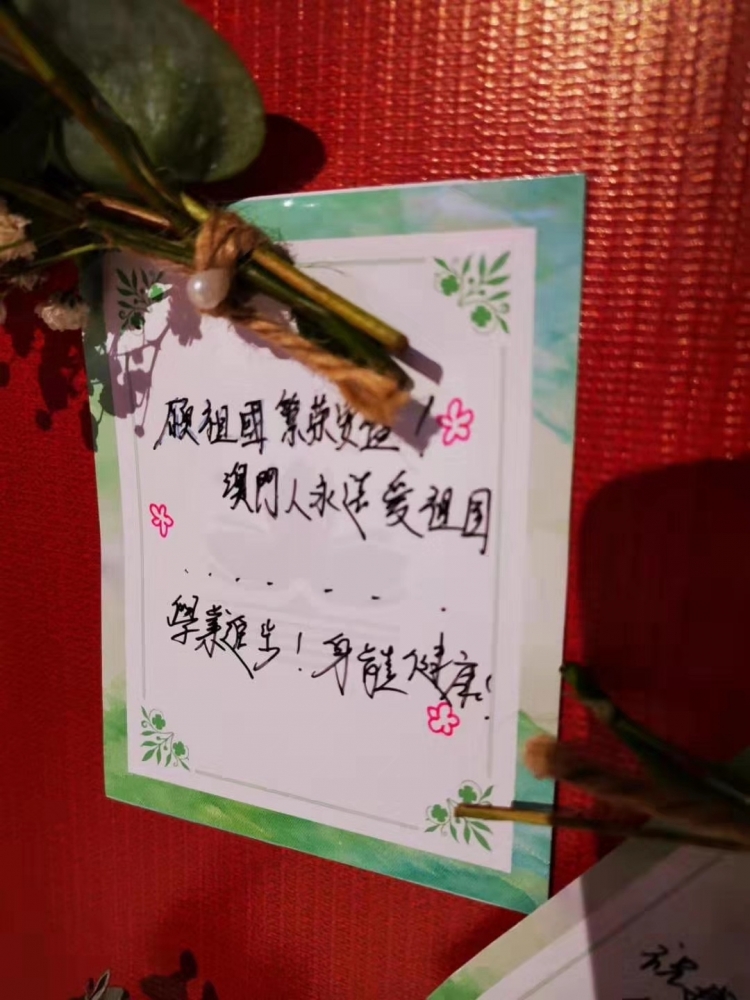 願祖國繁榮昌盛!
澳門人永遠愛祖国
學業進步!身體健康!
祝